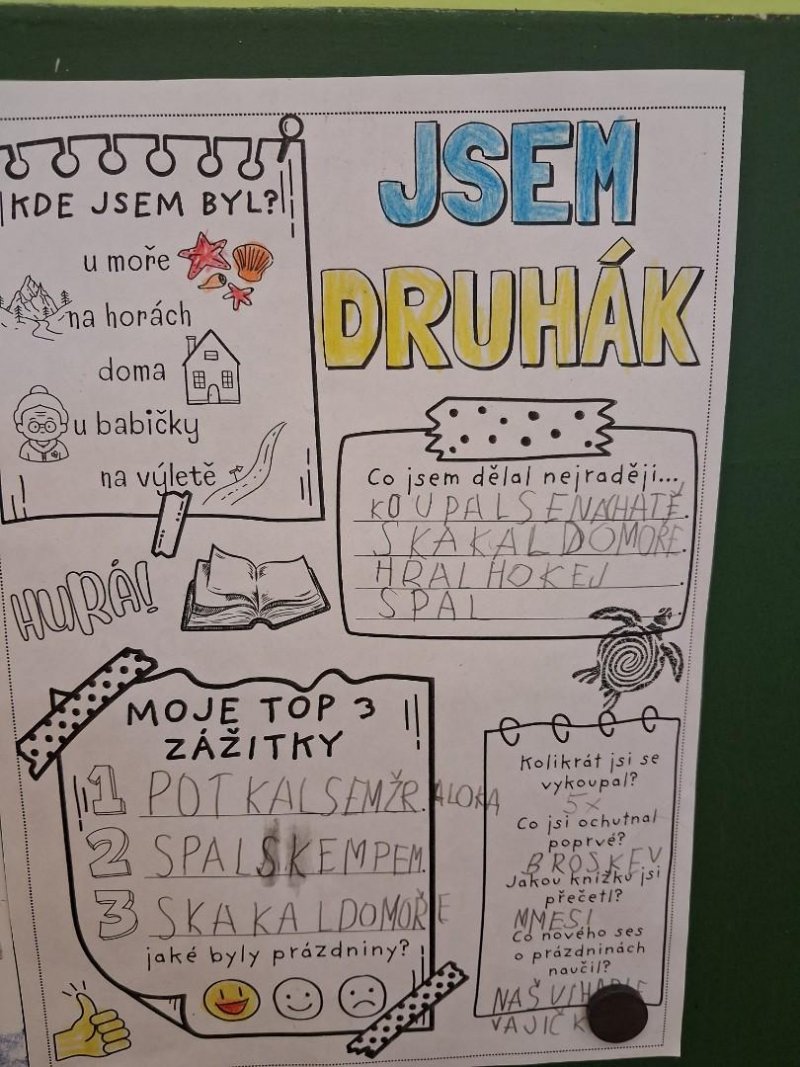 KDE JSEM BYL?
u moře
na horách
doma
u babičky
na výletě
JSEM
DRUHÁK
Co jsem dělal nejraději...
KOUPAL SE NAHATĚ.
SKÁKAL DO MOŘE.
HRAL HOKEJ.
SPAL
HURÁ!
MOJE TOP 3
ZÁŽITKY
1 POTKAL SEM ŽRALOKA
2 SPAL S KEMPEM.
3 SKAKAL DO MOŘE
jaké byly prázdniny?
Kolikrát jsi se
vykoupal?
5x
Co jsi ochutnal
poprvé?
BROSKEV
Jakou knížku jsi
přečetl?
Co nového ses
o prázdninách
naučil?